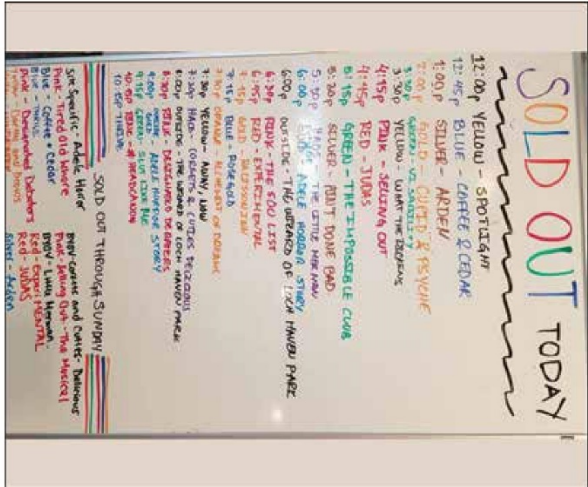 SOLD OUT TODAY
12:00p YELLOW - SPOTLIGHT
12:45p BLUE COFFEE & CEDAR
1:00p SILVER - ARDEN
2:00p GOLD - CUPID & PSYCHE
3:30p GREEN -
3:30p YELLOW - WHAT THE DICKENS
4:15p PINK - SELLING OUT
4:45p RED - JUDAS
5:15p GREEN - THE IMPOSSIBLE CLUB
5:20p SILVER - AIN'T DONE BAD
5:30p THE LITTLE MERMAN
6:00p ADELE HORROR STORY
6:00p OUTSIDE - THE WIZARD OF LOCH HAVEN PARK
6:30p PINK - THE SOU LIST
6:45p RED - EXPERIMENTAL
7:15p GOLD -
7:15p BLUE - ROSEGOLD
7:30p ORANGE - ALCHEMIST OF
7:30p YELLOW - AWAY, LAW
7:30p - CORSETS & CUTIES DELICIOUS
8:00p OUTSIDE - THE WIZARD OF LOCH HAVEN PARK
8:30p PINK - DESIGNATED DEBATERS
9:00p ADELE HORROR STORY
9:15p
10:15p PINK -
10:15p
SOLD OUT THROUGH SUNDAY
Site Specific - Adele Horror
Pink - Tired Old Whore
Blue - Coffee + Cedar
Blue -
Pink - Designated Debaters
BYOV - Corsets and Cuties - Delicious
Pink - Selling Out - The Musical
BYOV - Little Merman
Red - ExperiMENTAL
Red - JUDAS
Silver - Arden